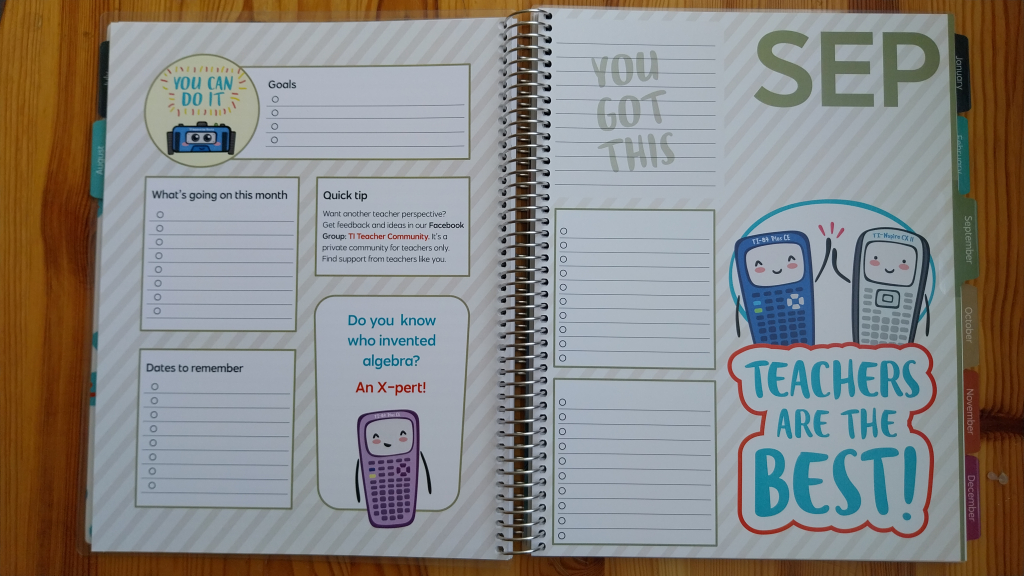 YOU CAN
DO IT
Goals
What's going on this month
Quick tip
Want another teacher perspective?
Get feedback and ideas in our Facebook
Group: TI Teacher Community. It's a
private community for teachers only.
Find support from teachers like you.
Dates to remember
Do you know
who invented
algebra?
An X-pert!
TI-84 Plus CE
August
YOU
GOT
THIS
SEP
TI-84 Plus CE
TI-Nspire CX II
TEACHERS
ARE THE
BEST!
January
February
September
October
November
December